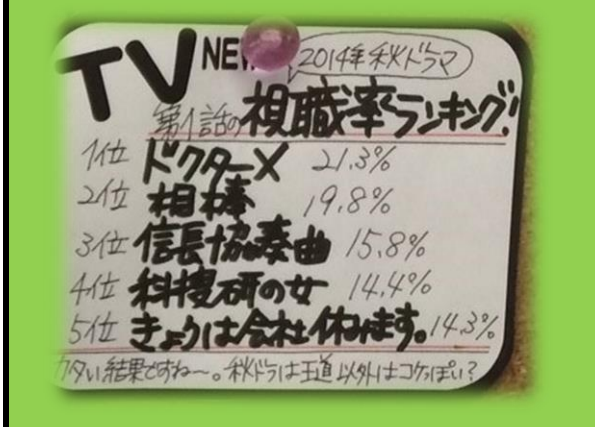 TV NEW
2014年秋ドラマ
第1話の視職率ランキング!
1位 ドクターX 21.3%
2位 相棒 19.8%
3位 信長協奏曲 15.8%
4位 科捜研の女 14.4%
5位 きょうは会社休みます。14.3%
カタい結果ですね〜。秋ドラは王道以外はコケっぽい?